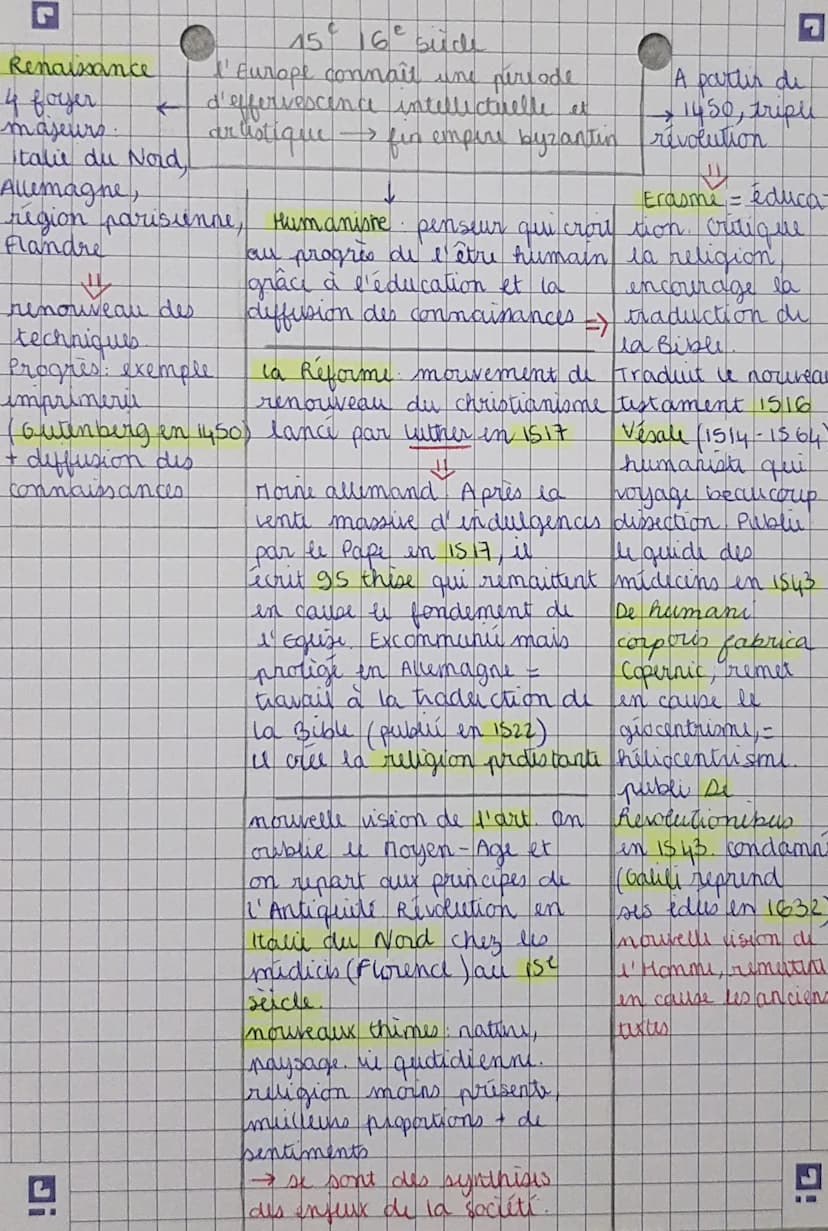 15e 16e siècle
l'Europe connaît une période
d'effervescence intellectuelle et
artistique → fin empire byzantin
Renaissance
4 foyer ←
majeurs.
italie du Nord,
Allemagne,
région parisienne,
flandre
⇓
renouveau des
techniques
Progrès: exemple
imprimerie
(Gutenberg en 1450)
+ diffusion des
connaissances
↓
Humaniste: penseur qui croit
au progrès de l'être humain
grâce à l'éducation et la
diffusion des connaissances ⇒
la Réforme: mouvement de
renouveau du christianisme
lancé par Luther en 1517
⇓
Moine allemand. Après la
vente massive d'indulgences
par le Pape en 1517, il
écrit 95 thèse qui remaittent
en cause le fondement de
l'Eglise. Excommunié mais
protégé en Allemagne =
travail à la traduction de
la Bible (publié en 1522)
il crée la religion protestante
nouvelle vision de l'art. on
oublie le Moyen-Age et
on repart aux principes de
l'Antiquité Révolution en
Italie du Nord chez les
médicis (Florence) au 15e
sèicle.
nouveaux thèmes: nature,
paysage. vie quotidienne.
religion moins présente,
meilleurs proportions + de
sentiments
→ se sont des synthèses
des enjeux de la société.
A partir de
→ 1450, triple
révolution
⇓
Erasme = éduca-
tion. critique
la religion,
encourage la
traduction de
la Bible.
Traduit le nouveau
testament 1516
Vésale (1514-1564)
humaniste qui
voyage beaucoup
dissection. Publie
le guide des
médecins en 1543
De humani
corporis fabrica
Copernic, remet
en cause le
géocentrisme, =
héliocentrisme.
publi De
Revolutionibus
en 1543. condamn
(Galilé reprend
ses idées en 1632)
nouvelle vision de
l'Homme, remettant
en cause les anciens
textes